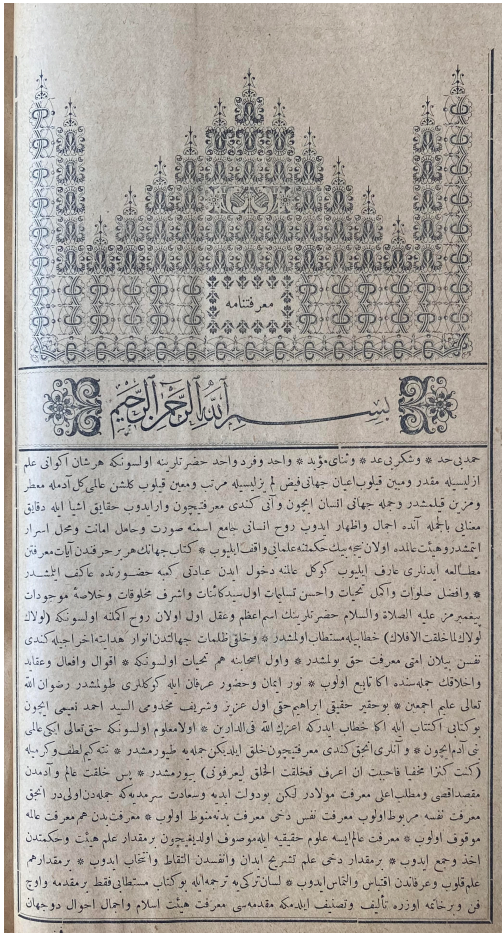 معرفتنامه
بسم الله الرحمن الرحيم
حمد بی حد * وشكر بی عد * وثنای مؤبد * واحد وفرد واحد حضرتلرينه اولسونكه هر شان اكوانی علم
ازليسيله مقدر ومبين قيلوب اعيان جهانی فيض لم يزليسيله مرتب ومعين قيلوب گلشن عالمی گل آدمله معطر
ومزين قيلمشدر وجمله جهانی انسان ايچون وآنی كندی معرفتيچون وار ايدوب حقايق اشيا ايله دقايق
معنایی بالجمله آنده اجمال واظهار ايدوب روح انسانی جامع اسمنه صورت وحامل امانت ومحل اسرار
ايتمشدر وهيئت عالمده اولان نيجه بيك حكمتنه علمایی واقف ايليوب * كتاب جهانك هر بر حرفندن آيات معرفتن
مطالعه ايدنلری عارف ايليوب كوكل عالمنه دخول ايدن عبادنی كعبه حضورنده عاكف ايتلشدر
* وافضل صلوات واكمل تحيات واحسن تسليمات اول سيد كائنات واشرف مخلوقات وخلاصهٔ موجودات
پيغمبرمز عليه الصلاة والسلام حضرتلرينك اسم اعظم وعقل اول اولان روح اكملنه اولسونكه (لولاك
لولاك لما خلقت الافلاك) خطابيله مستطاب اولمشدر * وخلقی ظلمات جهالتدن انوار هدايته اخراجيله كندی
نفسن بيلان امتی معرفت حق بولمشدر * واول اصحابنه هم تحيات اولسونكه * اقوال وافعال وعقايد
واخلاقك جمله سنده اكا تابع اولوب * نور ايمان وحضور عرفان ايله كوكللری طولمشدر رضوان الله
تعالی عليهم اجمعين * بو حقير حقیقی ابراهيم حقی اول عزيز وشريف مخدومی السيد احمد نعیمی ايچون
بو كتابی اكتتاب ايله اكا خطاب ايدر كه اعزك الله فی الدارين * اولا معلوم اولسونكه حق تعالی ايكی عالمی
بنی آدم ايچون * وآنلری انجق كندی معرفتيچون خلق ايلديكن جمله يه طيورمشدر * نته كيم لطف وكرميله
(كنت كنزا مخفيا فاحببت ان اعرف فخلقت الخلق ليعرفونی) بيورمشدر * پس خلقت عالم وآدمدن
مقصد اقصی ومطلب اعلی معرفت مولادر لكن بو دولت ابديه وسعادت سرمديه كه جمله دن اولی در انجق
معرفت نفسه مربوط اولوب معرفت نفس دخی معرفت بدنه منوط اولوب * معرفت بدن هم معرفت عالمه
موقوف اولوب * معرفت عالم ايسه علوم حقيقيه ايله موصوف اولديغيچون برمقدار علم هيئت وحكمتدن
اخذ وجمع ايدوب * برمقدار دخی علم تشريح ابدان وانفسدن التقاط وانتخاب ايدوب * برمقدار هم
علم قلوب وعرفاندن اقتباس والتماس ايدوب * لسان تركی يه ترجمه ايله بو كتاب مستطابی فقط بر مقدمه واوچ
فن وبر خاتمه اوزره تأليف وتصنيف ايلدمكه مقدمه سی معرفت هيئت اسلام واجمال احوال دو جهان